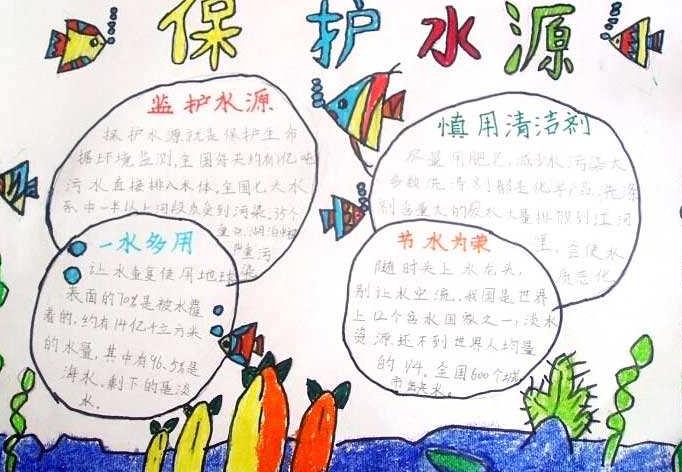 保护水源
监护水源
保护水源就是保护生命
据环境监测,全国每天约有1亿吨
污水直接排入水体,全国七大水
系中一半以上河段
受到污染,35个
重
湖泊
严重污
染
慎用清洁剂
尽量用肥皂,减少水污染大
多数洗清剂都是化学产品,洗涤
剂含量大的废水大量排放到江河
里,会使水
质恶化
一水多用
让水重复使用地球
表面的70%是被水覆
盖的,约有14亿4立方米
的水量,其中有96.5%是
海水,剩下的是淡
水。
节水为荣
随时关上水龙头,
别让水空流,我国是世界
上12个贫水国家之一,淡水
资源还不到世界人均量
的1/4,全国600个城
市缺水。